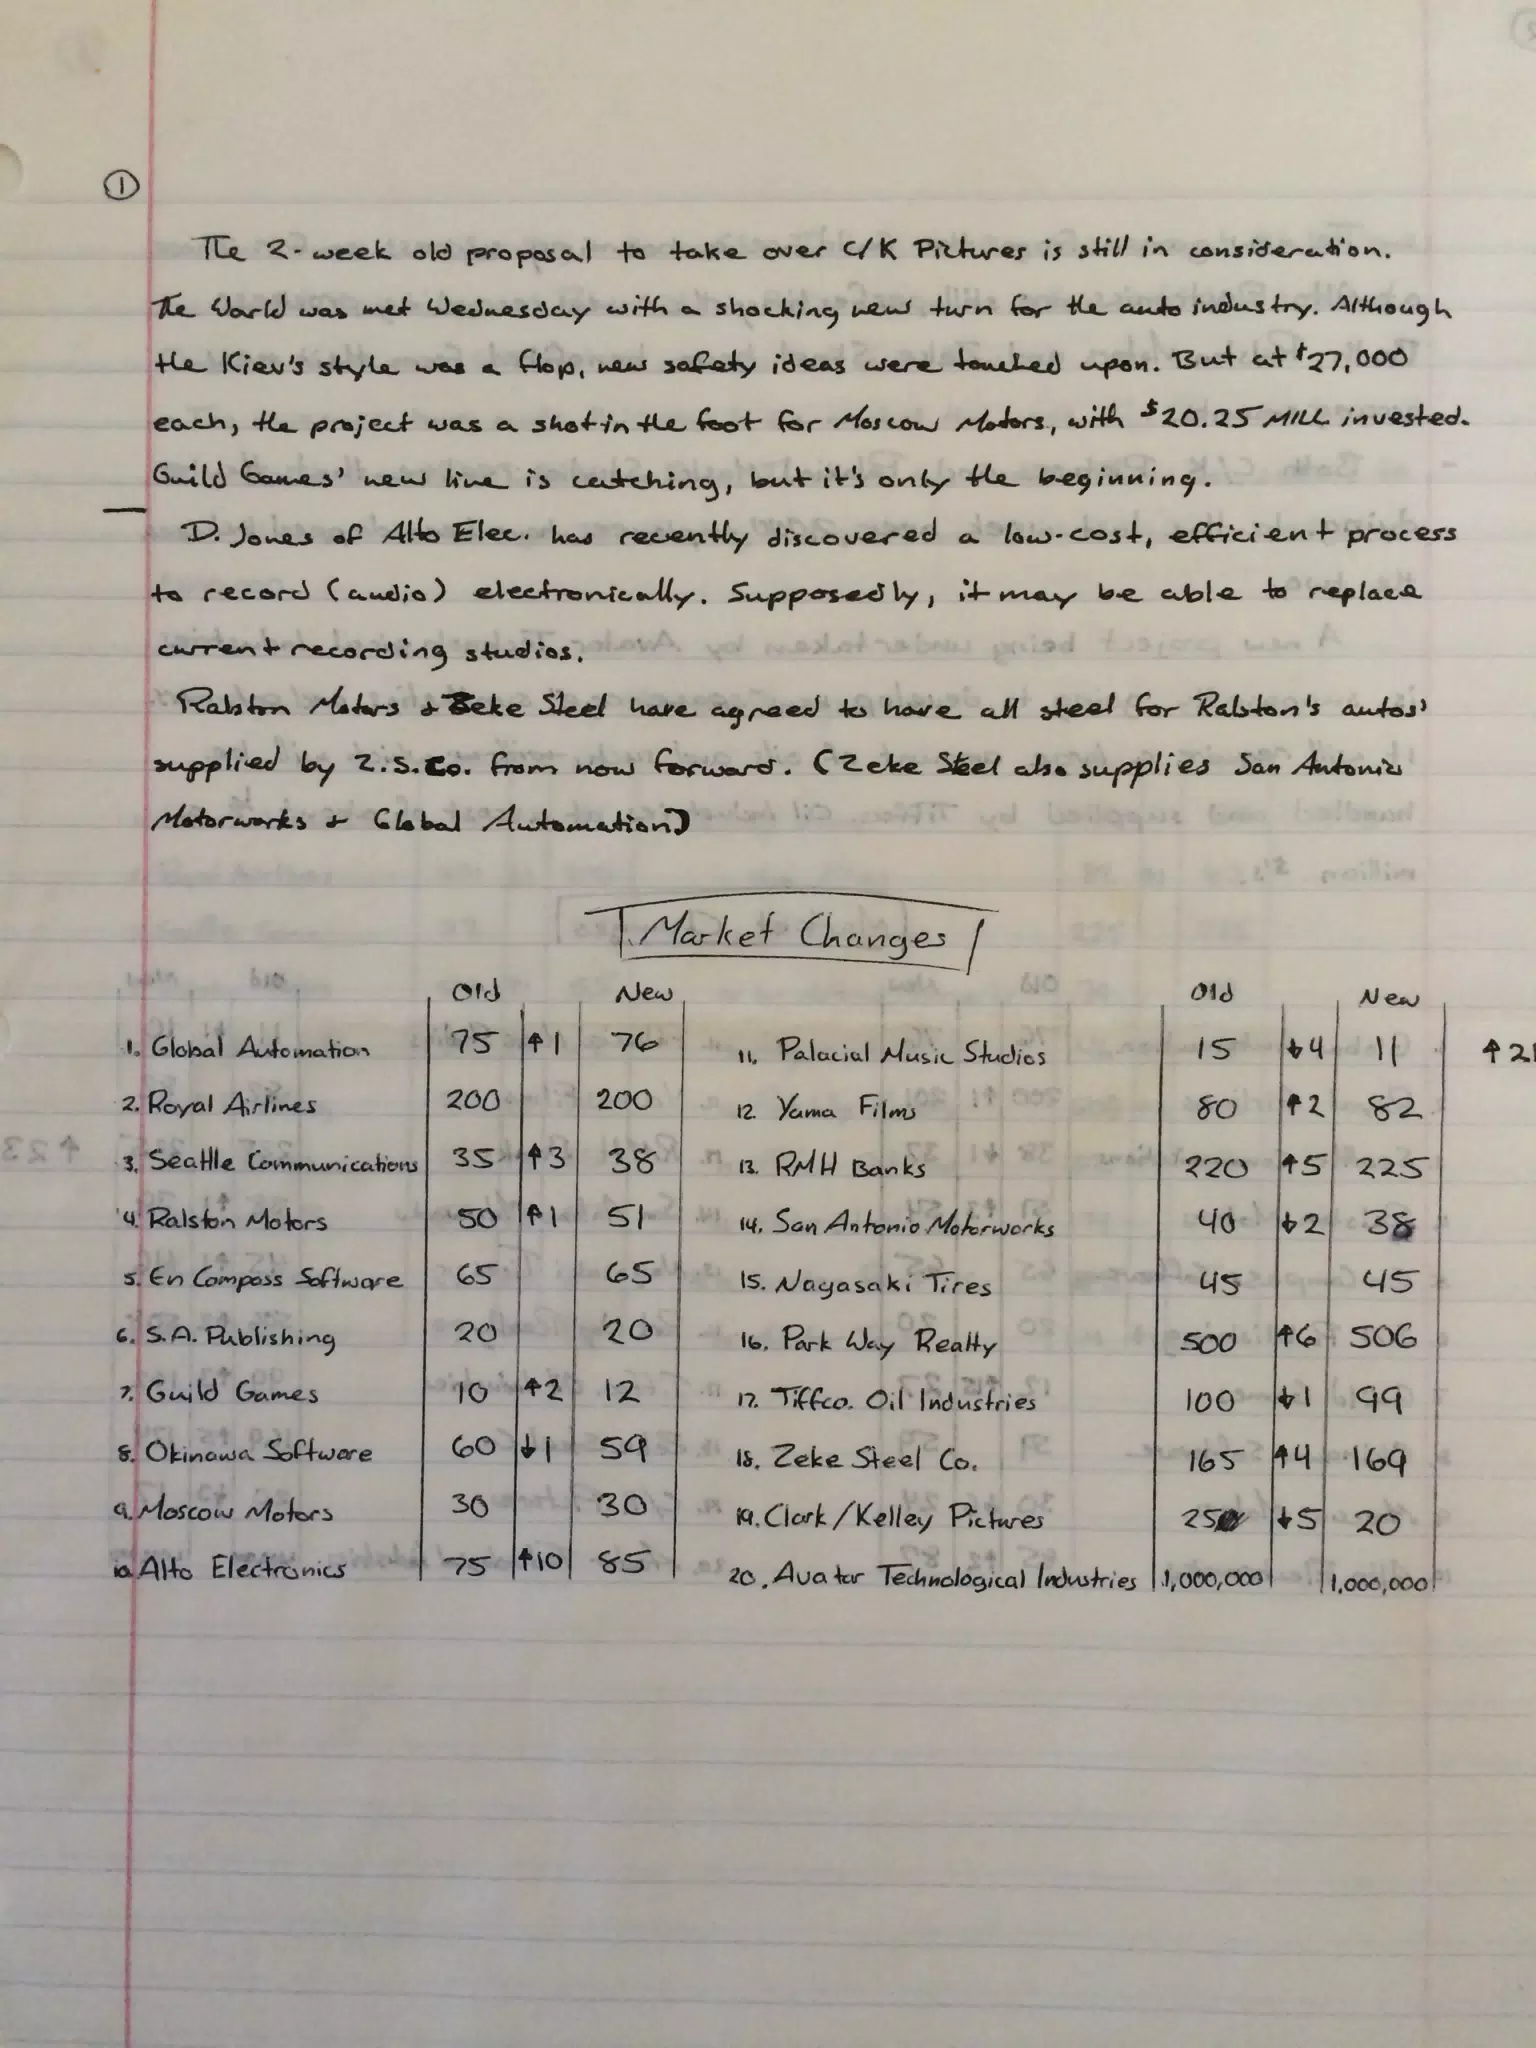 ①
The 2-week old proposal to take over C/K Pictures is still in consideration.
The World was met Wednesday with a shocking new turn for the auto industry. Although
the Kiev's style was a flop, new safety ideas were touched upon. But at $27,000
each, the project was a shot in the foot for Moscow Motors, with $20.25 MILL invested.
Guild Games' new line is catching, but it's only the beginning.
D. Jones of Alto Elec. has recently discovered a low-cost, efficient process
to record (audio) electronically. Supposedly, it may be able to replace
current recording studios.
Ralston Motors + Zeke Steel have agreed to have all steel for Ralston's autos'
supplied by Z.S.Co. from now forward. (Zeke Steel also supplies San Antonio
Motorworks + Global Automation)
Market Changes
Old New
1. Global Automation 75 ↑1 76
2. Royal Airlines 200 200
3. Seattle Communications 35 ↑3 38
4. Ralston Motors 50 ↑1 51
5. En Compass Software 65 65
6. S.A. Publishing 20 20
7. Guild Games 10 ↑2 12
8. Okinawa Software 60 ↓1 59
9. Moscow Motors 30 30
10. Alto Electronics 75 ↑10 85
Old New
11. Palacial Music Studios 15 ↓4 11 ↑21
12 Yama Films 80 ↑2 82
13. RMH Banks 220 ↑5 225
14. San Antonio Motorworks 40 ↓2 38
15. Nagasaki Tires 45 45
16. Park Way Realty 500 ↑6 506
17. Tiffco. Oil Industries 100 ↓1 99
18. Zeke Steel Co. 165 ↑4 169
19. Clark/Kelley Pictures 25 ↓5 20
20. Avatar Technological Industries 1,000,000 1,000,000